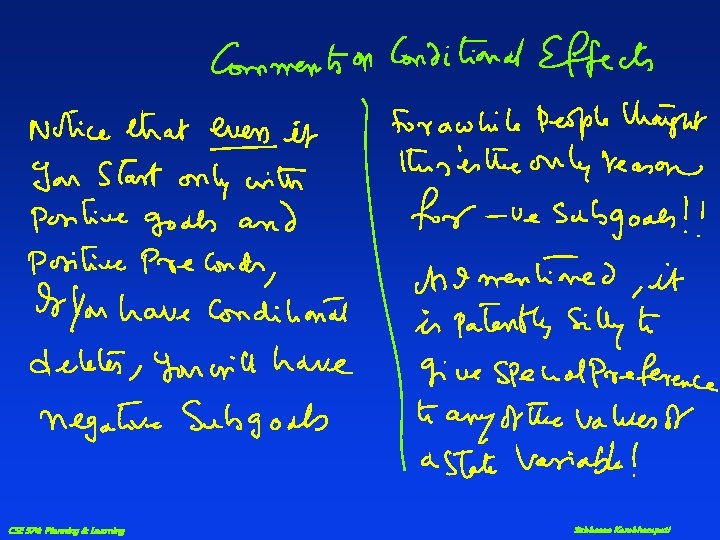 Comments on Conditional Effects
Notice that even if
you start only with
Positive goals and
Positive Preconds,
If you have Conditional
deletes, you will have
negative Subgoals
For a while People thought
this is the only reason
for -ve Subgoals!!
As I mentioned, it
is patently silly to
give special Preference
to any of the values of
a state Variable!
CSE 574: Planning & Learning
Subbarao Kambhampati